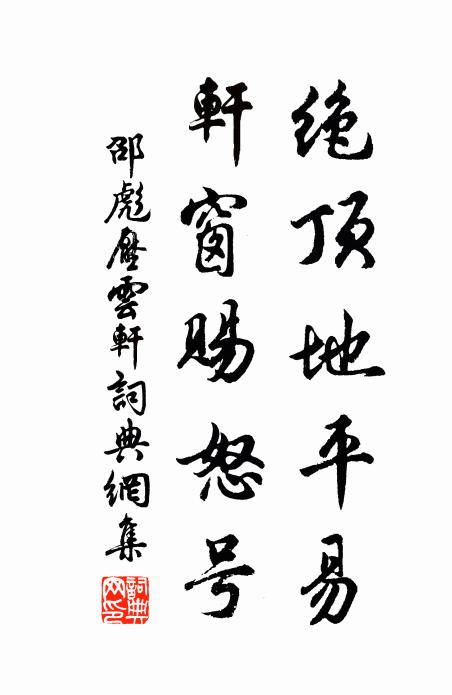 绝顶地平易
軒窗賜怒号
邵彪壓雲軒詞典網集
詞典